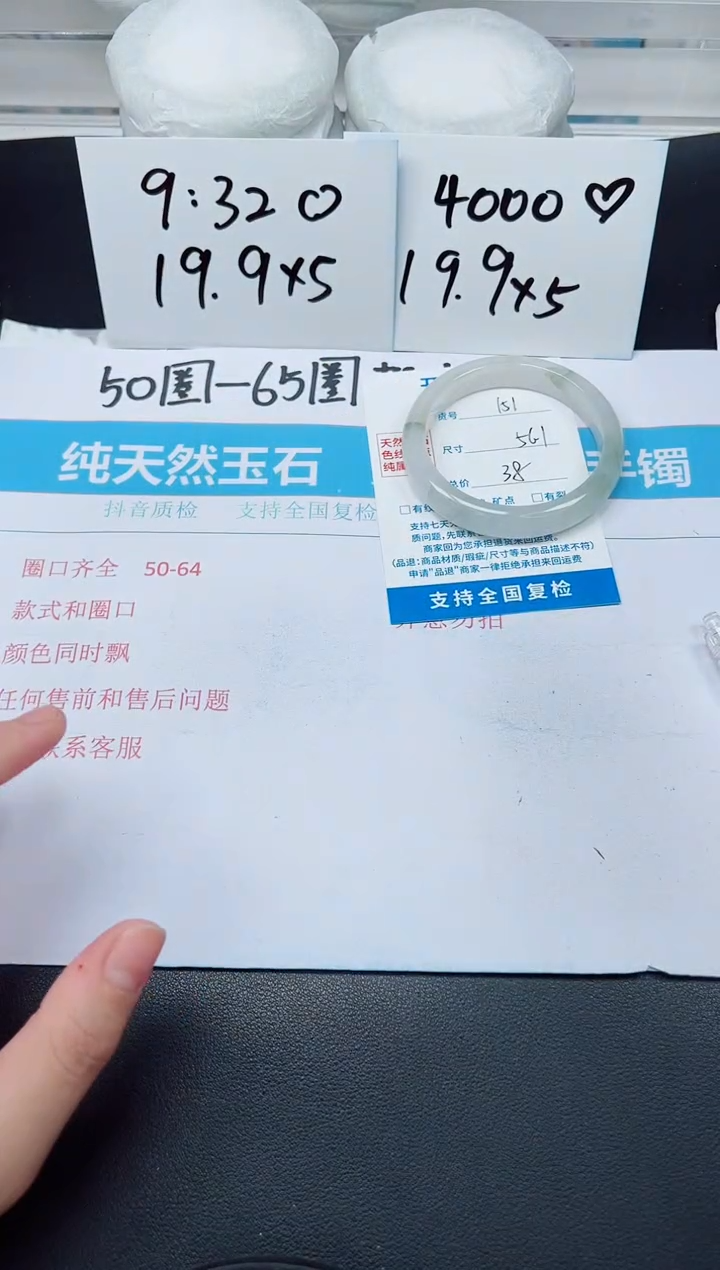 9:32
19.9×5
4000♡
19.9×5
50圈—65圈
纯天然玉石
手镯
抖音质检 支持全国复检
圈口齐全 50-64
款式和圈口
颜色同时飘
任何售前和售后问题
联系客服
货号 151
天然
色
纯
尺寸 561
总价 38
矿点 □有
支持七天
质问题,先联系
商家回为您承担退货来回运费。
(品退:商品材质/瑕疵/尺寸等与商品描述不符)
申请"品退"商家一律拒绝承担来回运费
支持全国复检
介意勿拍